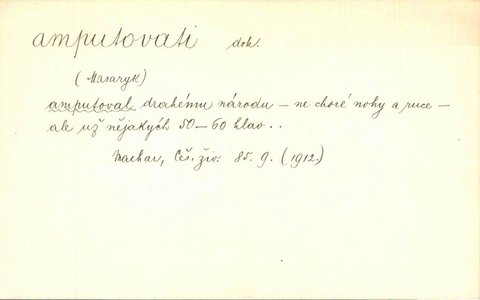 amputovati dok.
(Masaryk)
amputoval drahému národu – ne choré nohy a ruce –
ale už nějakých 50–60 hlav..
Machar, Čes. živ. 85.9. (1912.)